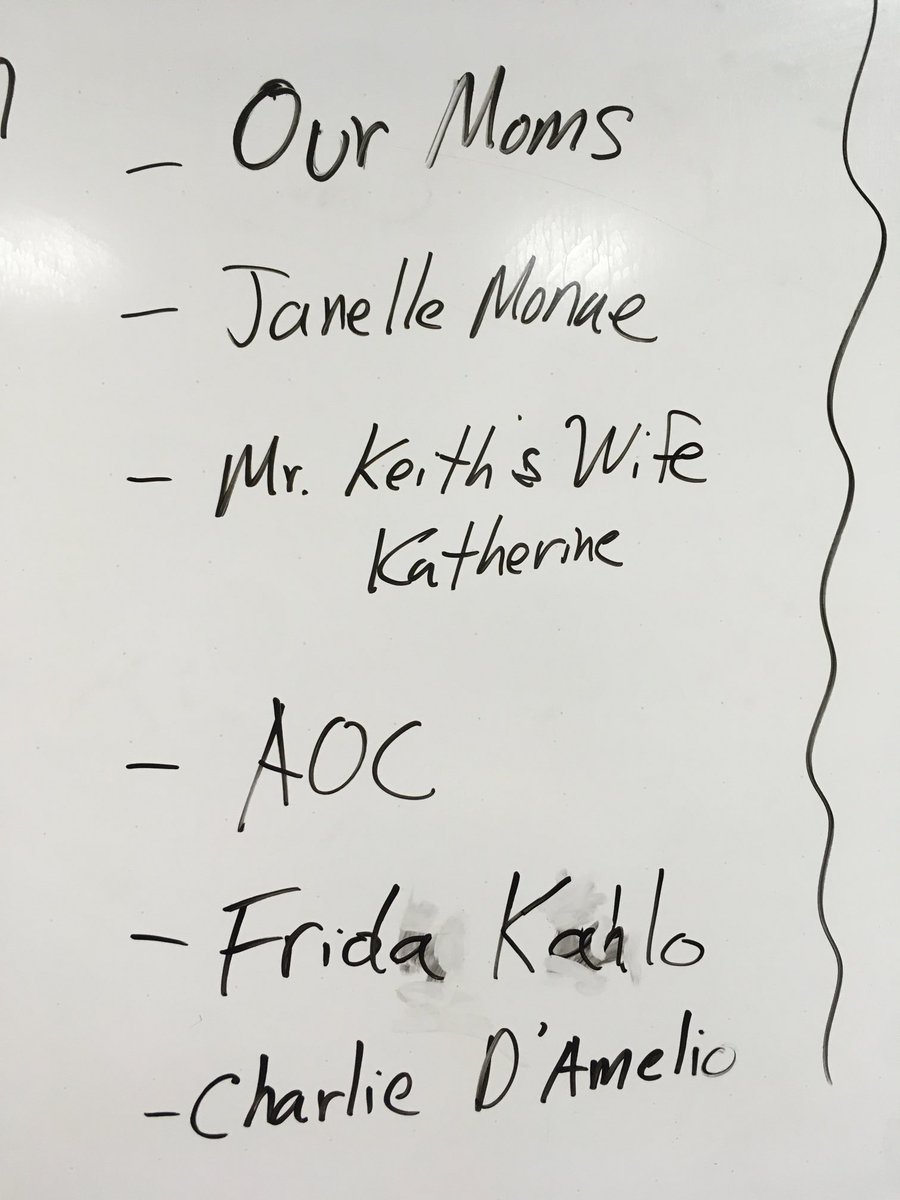 - Our Moms
- Janelle Monae
- Mr. Keith's Wife
Katherine
- AOC
- Frida Kahlo
- Charlie D'Amelio